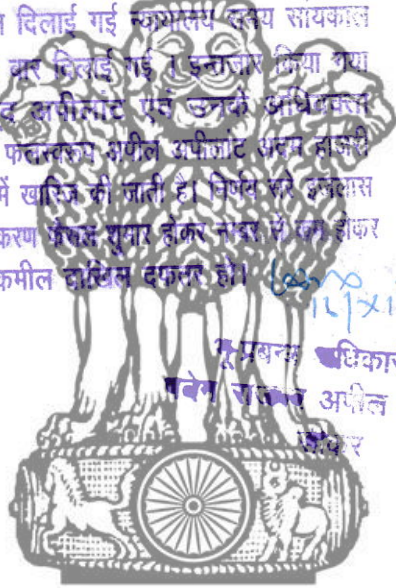 दिलाई गई न्यायालय समय सायंकाल
वार दिलाई गई । इन्तजार किया गया
अपीलांट एवं उनके अधिवक्ता
फलस्वरूप अपील अपीलांट अदम हाजरी
में खारिज की जाती है। निर्णय सरे इजलास
करण फैसल शुमार होकर नम्बर से कम होकर
दाखिल दफ्तर हो।
भू-प्रबन्ध
अपील